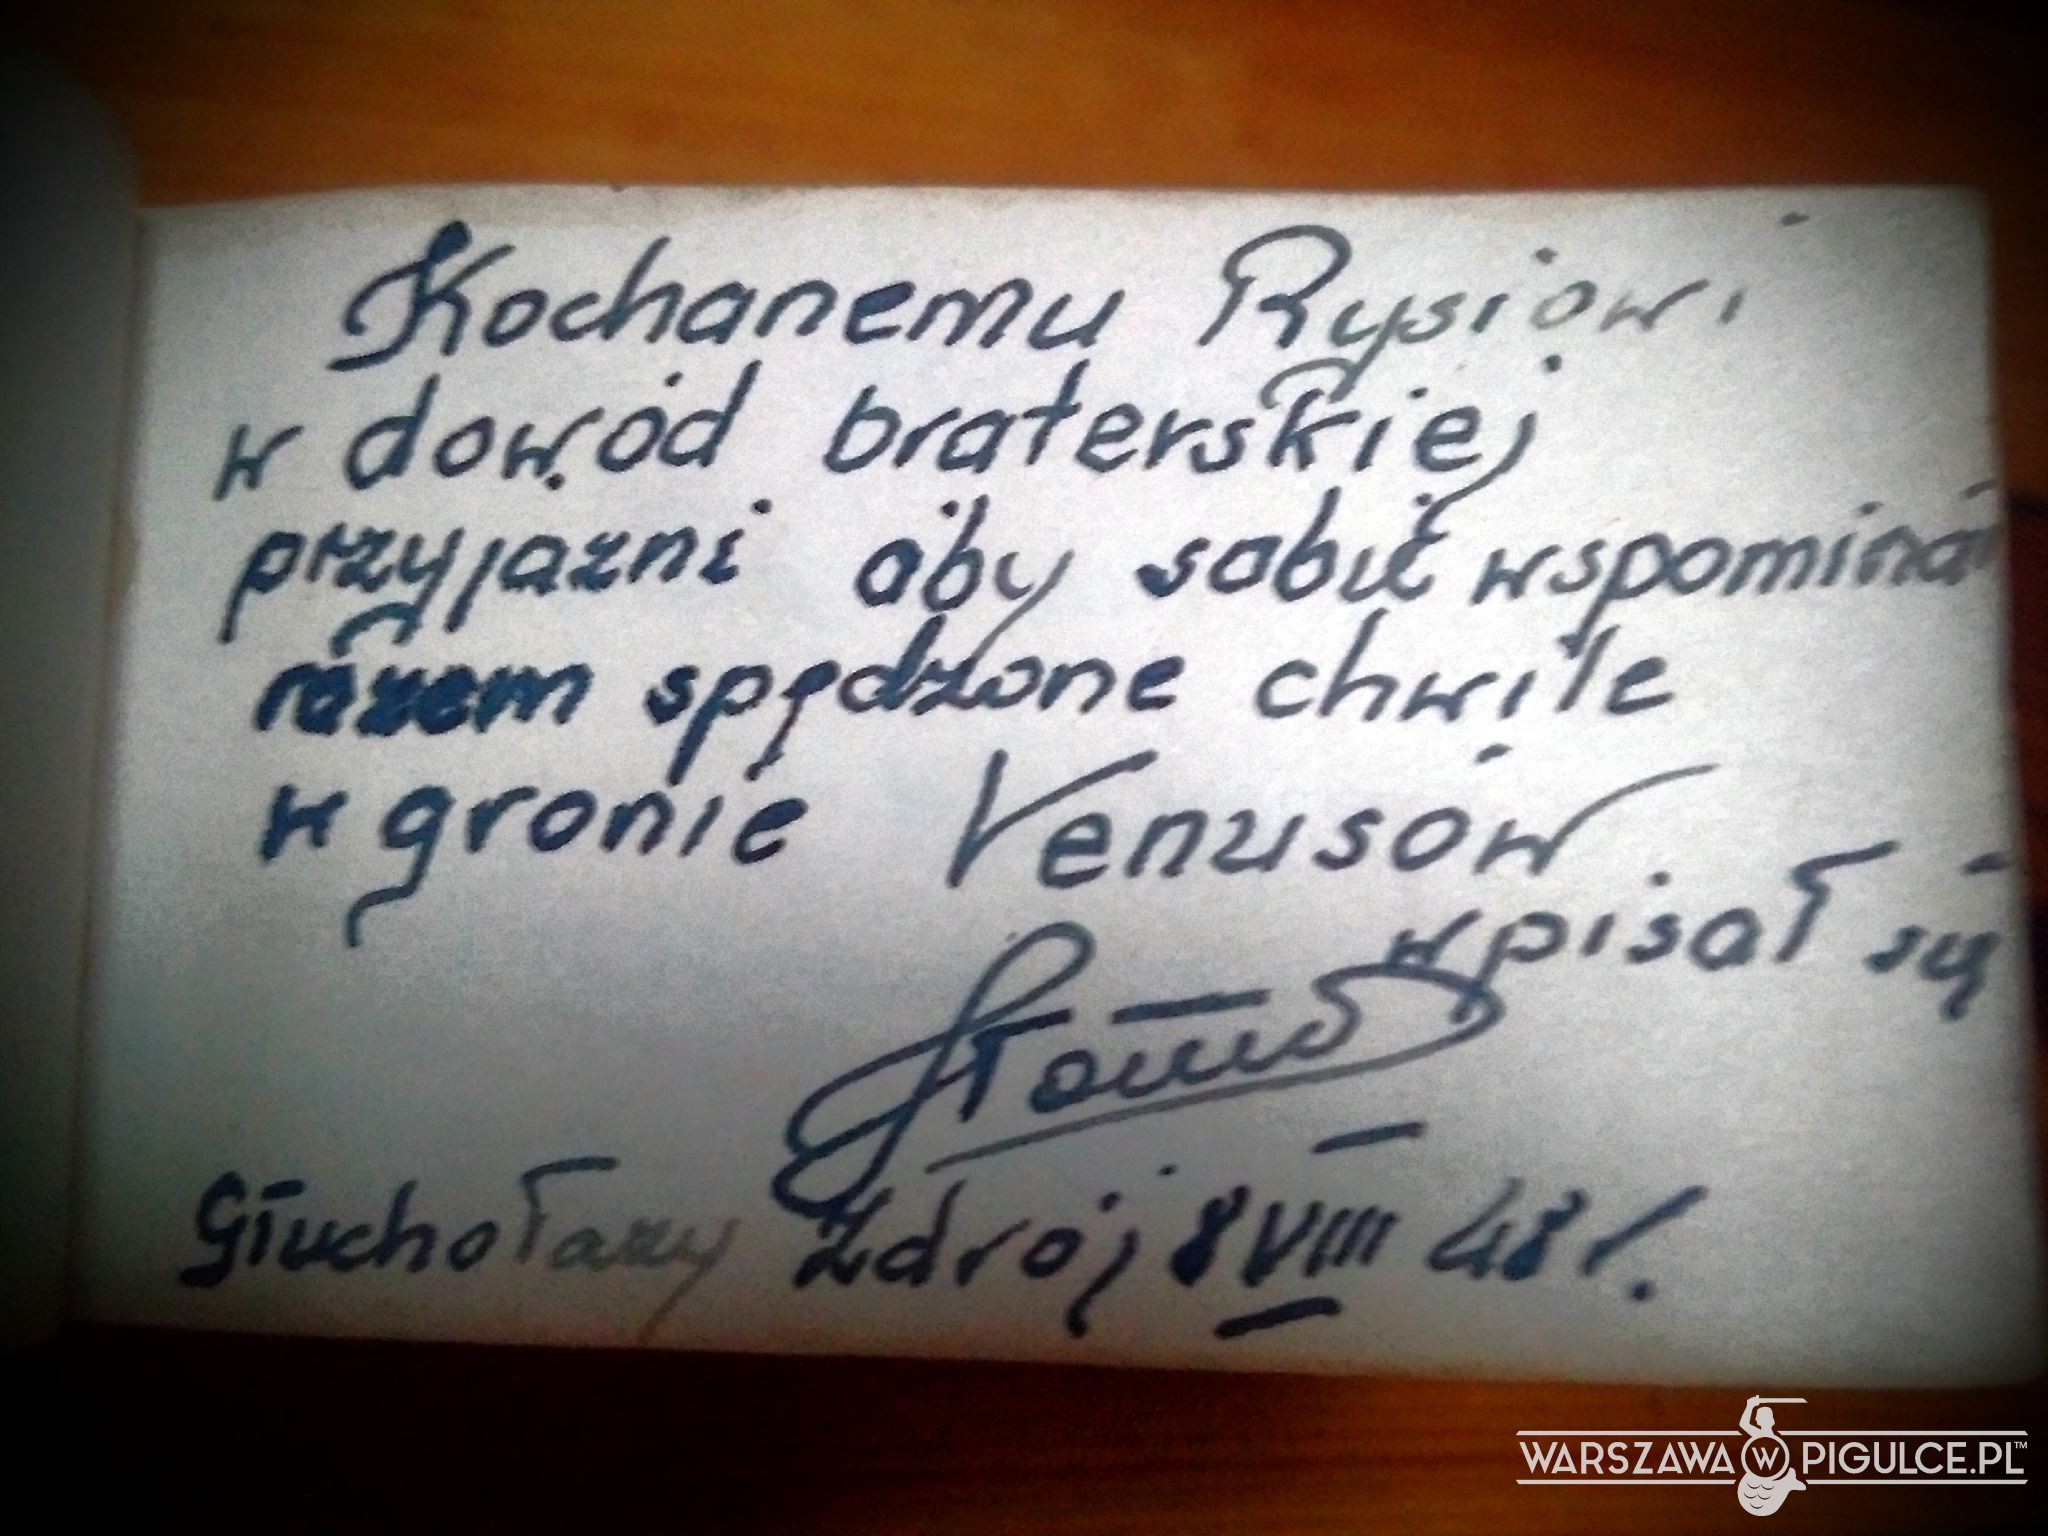 Kochanemu Rysiowi
w dowód braterskiej
przyjaźni aby sobie wspominał
razem spędzone chwile
w gronie Venusów
wpisał się
Głuchołazy Zdrój 8 VIII 48 r.
WARSZAWA W PIGULCE.PL™